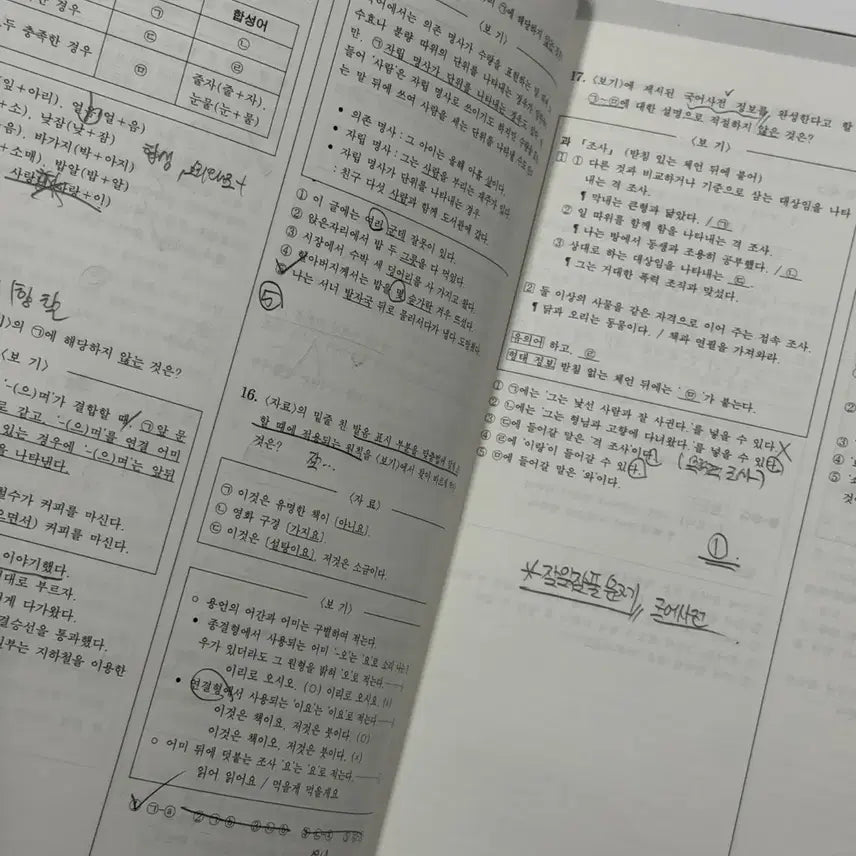 한 경우
㉠
합성어
모두 충족한 경우
㉢
㉡
㉤
㉣
줄자(줄+자),
눈물(눈+물)
잎+아리), 얼음(얼+음)
+소), 낮잠(낮+잠)
+음), 바가지(박+아지)
+소매), 밥알(밥+알)
사랑+이)
합성
의 ㉠에 해당하지 않는 것은?
〈보 기〉
'-(으)며'가 결합할 때, ㉠앞 문
로 갈고, '-(으)며'를 연결 어미
있는 경우에 '-(으)며'는 앞뒤
을 나타낸다.
철수가 커피를 마신다.
으면서) 커피를 마신다.
이야기했다.
대로 부르자.
게 다가왔다.
결승선을 통과했다.
부는 지하철을 이용한
㉠에 해당하지
〈보 기〉
어에서는 의존 명사가 수량을 표현하는
수효나 분량 따위의 단위를 나타내는
만, ㉠자립 명사가 단위를 나타내는 경우도 있다.
들어 '사람'은 자립 명사로 쓰이기도 하지만
는 말 뒤에 쓰여 사람을 세는 단위를 나타낼 수도 있다.
• 의존 명사 : 그 아이는 올해 아홉 살이다.
• 자립 명사 : 그는 사람을 부리는 재주가 있다.
• 자립 명사가 단위를 나타내는 경우
: 친구 다섯 사람과 함께 도서관에 갔다.
① 이 글에는 여러 군데 잘못이 있다.
② 앉은자리에서 밥 두 그릇을 다 먹었다.
③ 시장에서 수박 세 덩어리를 사 가지고 왔다.
④ 할아버지께서는 밥을 몇 숟가락 겨우 뜨셨다.
⑤ 나는 서너 발자국 뒤로 물러서다가 냅다 도망쳤다.
⑤
16. 〈자료〉의 밑줄 친 발음 표시 부분을 맞춤법에 맞게
할 때에 적용되는 원칙을 〈보기〉에서 찾아 바르게
것은?
〈자 료〉
㉠ 이것은 유명한 책이 [아니요].
㉡ 영화 구경 [가지요].
㉢ 이것은 [설탕이요], 저것은 소금이다.
〈보 기〉
○ 용언의 어간과 어미는 구별하여 적는다.
• 종결형에서 사용되는 어미 '-오'는 '요'로 소리 나는
우가 있더라도 그 원형을 밝혀 '오'로 적는다.
이리로 오시오. (○) 이리로 오시요. (×)
• 연결형에서 사용되는 '이요'는 '이요'로 적는다
이것은 책이요, 저것은 붓이다. (○)
이것은 책이오, 저것은 붓이다. (×)
○ 어미 뒤에 덧붙는 조사 '요'는 '요'로 적는다.
읽어 읽어요 / 먹을게 먹을게요
① ㉠-ⓐ
17. 〈보기〉에 제시된 국어사전 정보를 완성한다고 할
㉠~㉤에 대한 설명으로 적절하지 않은 것은?
〈보 기〉
과 「조사」 (받침 있는 체언 뒤에 붙어)
[1] ① 다른 것과 비교하거나 기준으로 삼는 대상임을 나타
내는 격 조사.
¶ 막내는 큰형과 닮았다. / ㉠
② 일 따위를 함께 함을 나타내는 격 조사.
¶ 나는 방에서 동생과 조용히 공부했다. / ㉡
③ 상대로 하는 대상임을 나타내는 ㉢.
¶ 그는 거대한 폭력 조직과 맞섰다.
[2] 둘 이상의 사물을 같은 자격으로 이어 주는 접속 조사.
¶ 닭과 오리는 동물이다. / 책과 연필을 가져와라.
유의어 하고, ㉣
형태 정보 받침 없는 체언 뒤에는 '㉤'가 붙는다.
① ㉠에는 '그는 낯선 사람과 잘 사귄다.'를 넣을 수 있다. X
② ㉡에는 '그는 형님과 고향에 다녀왔다.'를 넣을 수 있다.
③ ㉢에 들어갈 말은 '격 조사'이다.
④ ㉣에 '이랑'이 들어갈 수 있다.
⑤ ㉤에 들어갈 말은 '와'이다.
①
국어사전